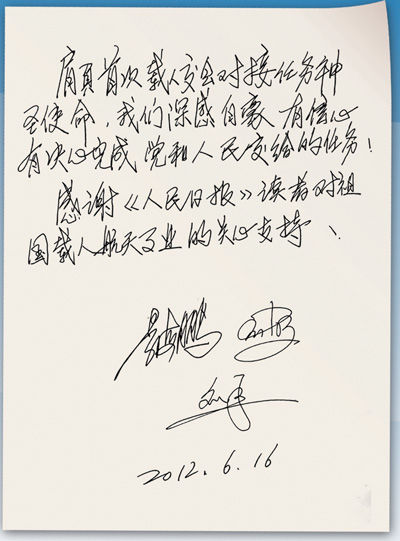 肩负首次载人交会对接任务神
圣使命，我们深感自豪 有信心
有决心完成党和人民交给的任务！
感谢《人民日报》读者对祖
国载人航天事业的关心支持！
景海鹏 刘旺
刘洋
2012.6.16